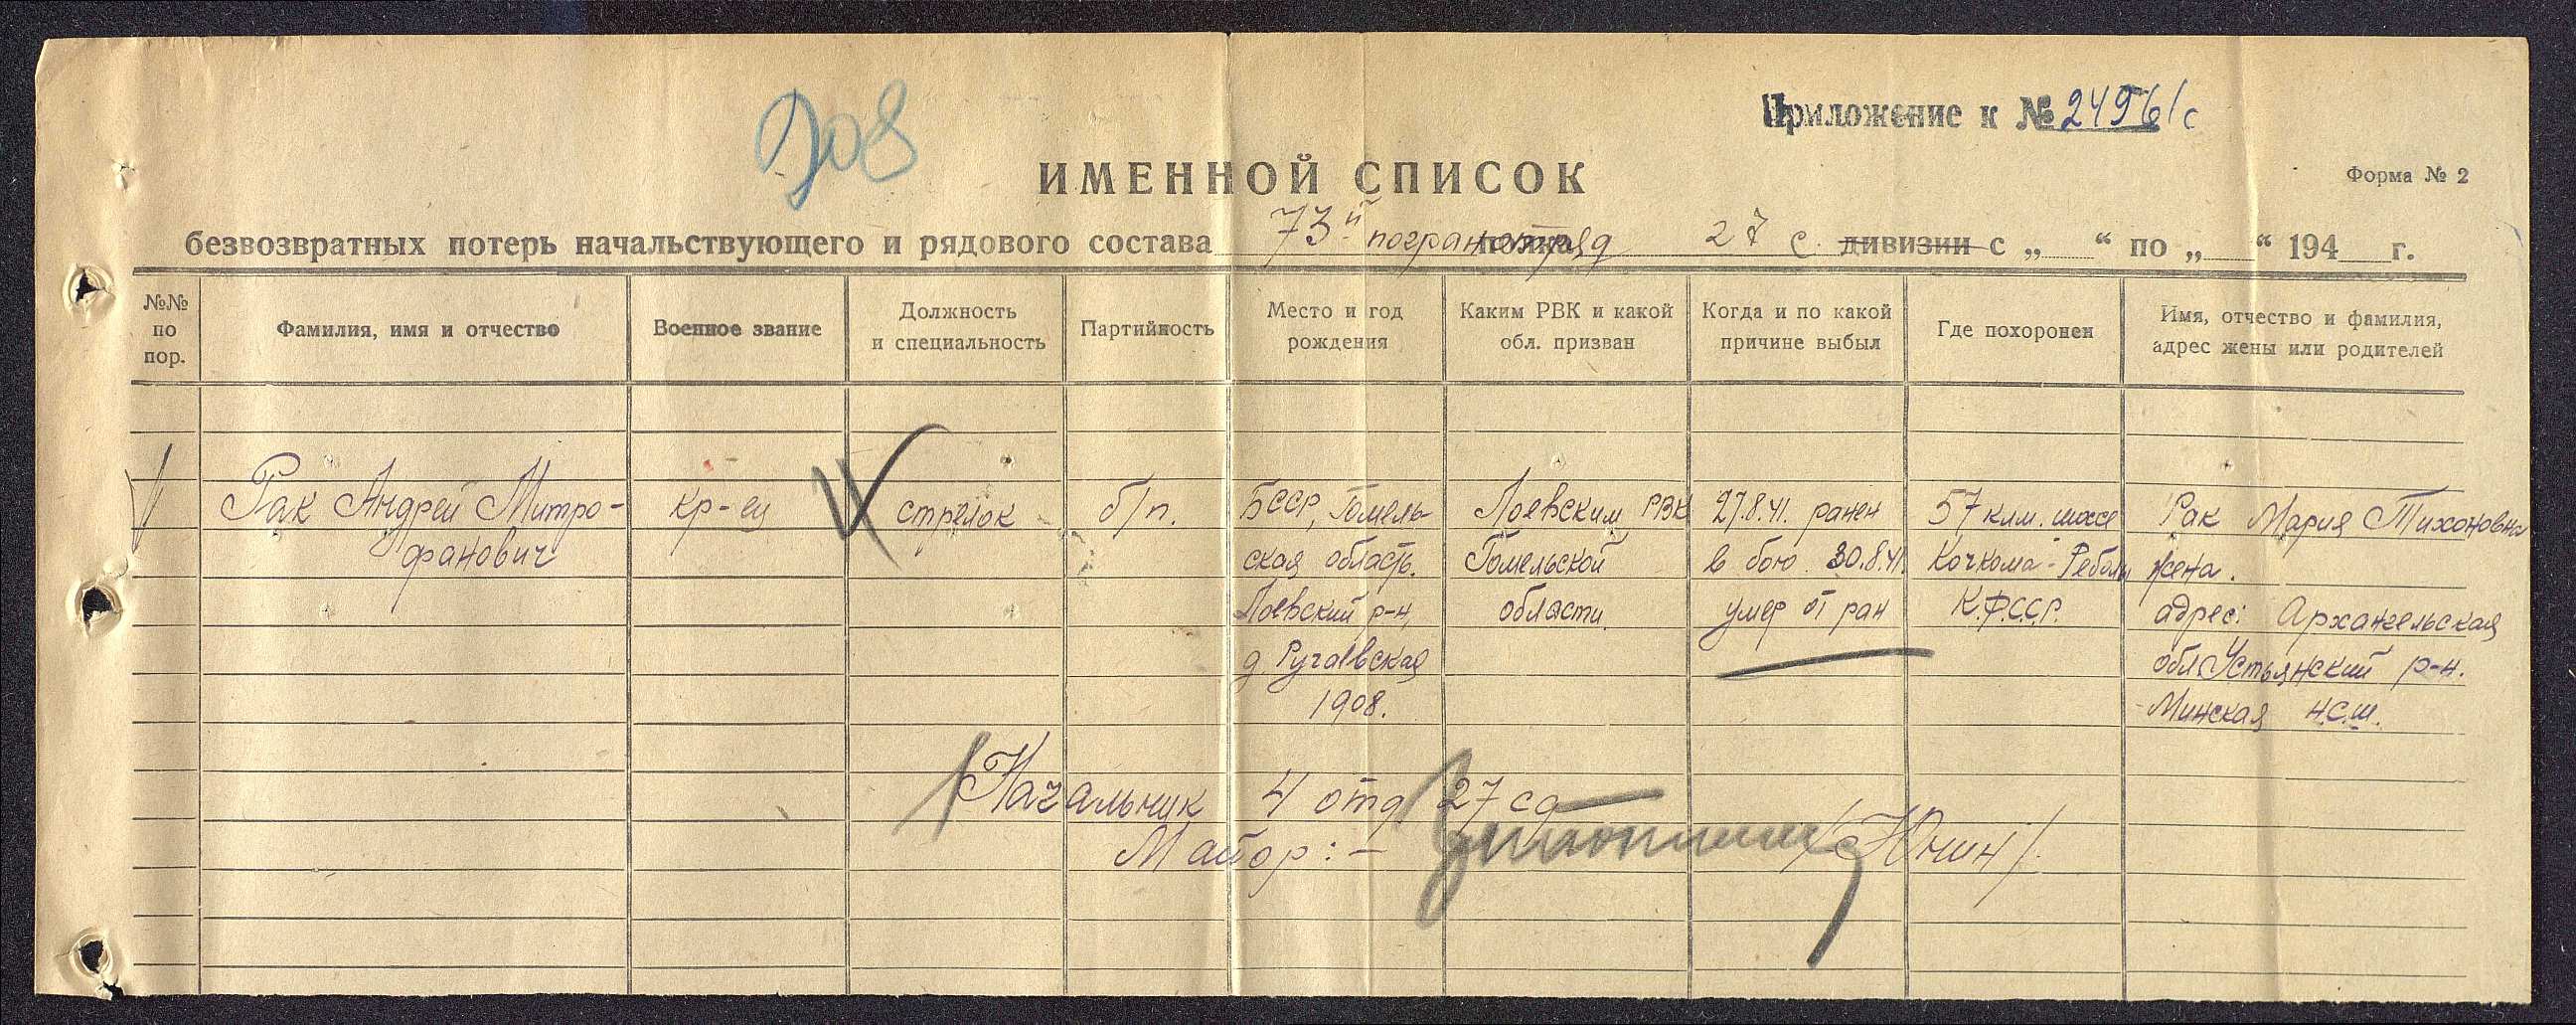 208
Приложение к № 24961/с
ИМЕННОЙ СПИСОК
Форма № 2
безвозвратных потерь начальствующего и рядового состава 73й погранотряд полка 27 с. дивизии с „ “ по „ “ 194 г.
№№ по пор.
Фамилия, имя и отчество
Военное звание
Должность и специальность
Партийность
Место и год рождения
Каким РВК и какой обл. призван
Когда и по какой причине выбыл
Где похоронен
Имя, отчество и фамилия, адрес жены или родителей
Рак Андрей Митро-
фанович
кр-ец
стрелок
б/п.
БССР, Гомель-
ская область.
Лоевский р-н,
д. Ручаевская
1908.
Лоевским РВК
Гомельской
области
27.8.41. ранен
в бою 30.8.41.
умер от ран
57 клм. шоссе
Кочкома-Реболы
К.Ф.С.С.Р.
Рак Мария Тихоновна
жена.
адрес: Архангельская
обл. Устьянский р-н.
Минская н.с.ш.
Начальник 4 отд 27 сд
Майор: - /Юнин/